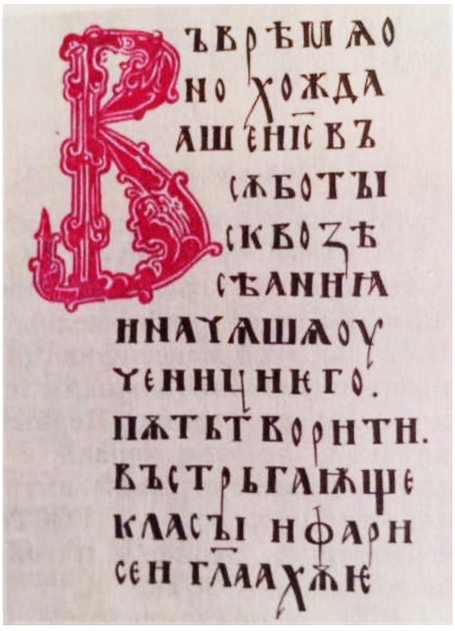 ВЪВРѢМѦО
НО ХОЖДА
АШЕИІС҃ВЪ
СѪБОТЪІ
СКВОЗѢ
СѢАНИꙖ
ИНАЧѦШѦОУ
ЧЕНИЦИѤГО.
ПѪТЬТВОРИТИ.
ВЪСТРЬГАѬЩЕ
КЛАСЪІ ИФАРИ
СЕИ ГЛ҃ААХѪѤ